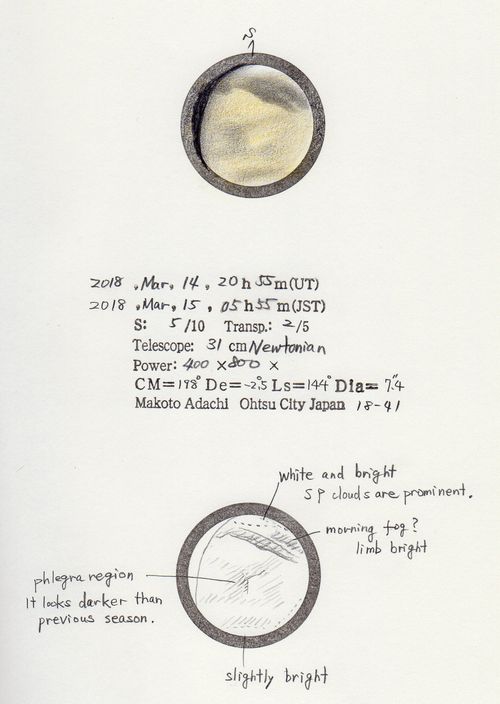 S
2018 , Mar, 14 , 20 h 55 m (UT)
2018 , Mar, 15 , 05 h 55 m (JST)
S: 5 /10 Transp.: 2/5
Telescope: 31 cm Newtonian
Power: 400 × 800 ×
CM=198° De=-2.°5 Ls=144° Dia= 7.″4
Makoto Adachi Ohtsu City Japan 18-41
white and bright
SP clouds are prominent.
morning fog?
limb bright
phlegra region
It looks darker than
previous season.
slightly bright